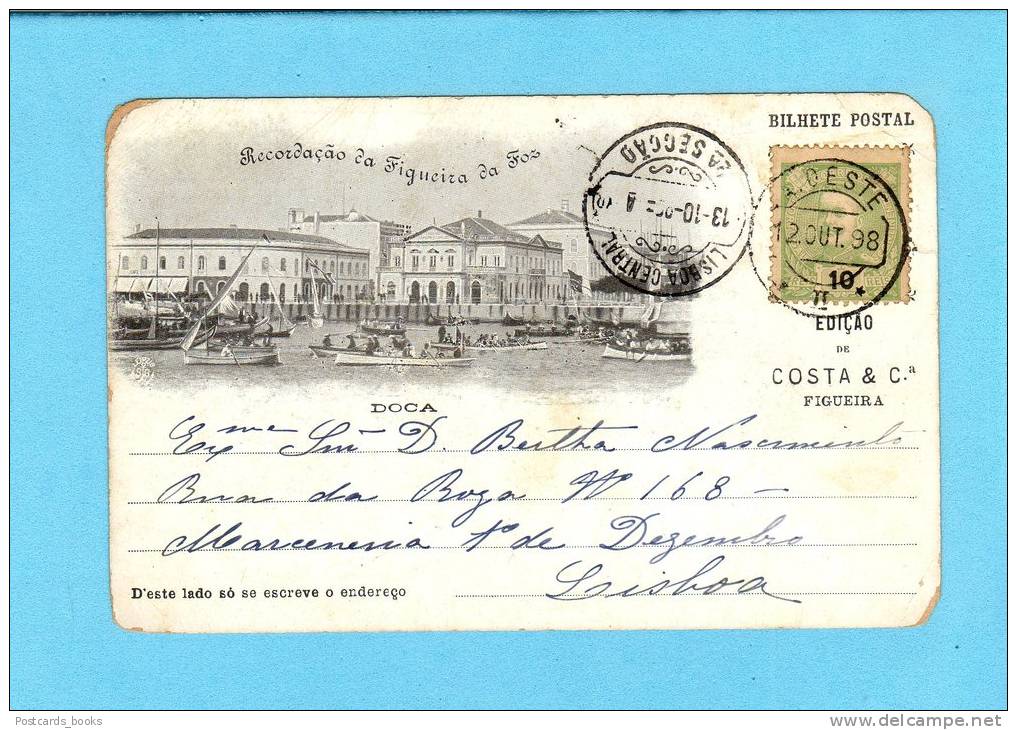 BILHETE POSTAL
Recordação da Figueira da Foz
2ª SECÇÃO
13-10-
LISBOA CENTRAL
OESTE
12.OUT.98
10
EDIÇÃO
DE
COSTA & C.ª
FIGUEIRA
DOCA
Exme Snrª D. Bertha Nascimento
Rua da Roza Nº 168 –
Marceneria 1º de Dezembro
Lisboa
D'este lado só se escreve o endereço
Postcards_books
www.delcampe.net